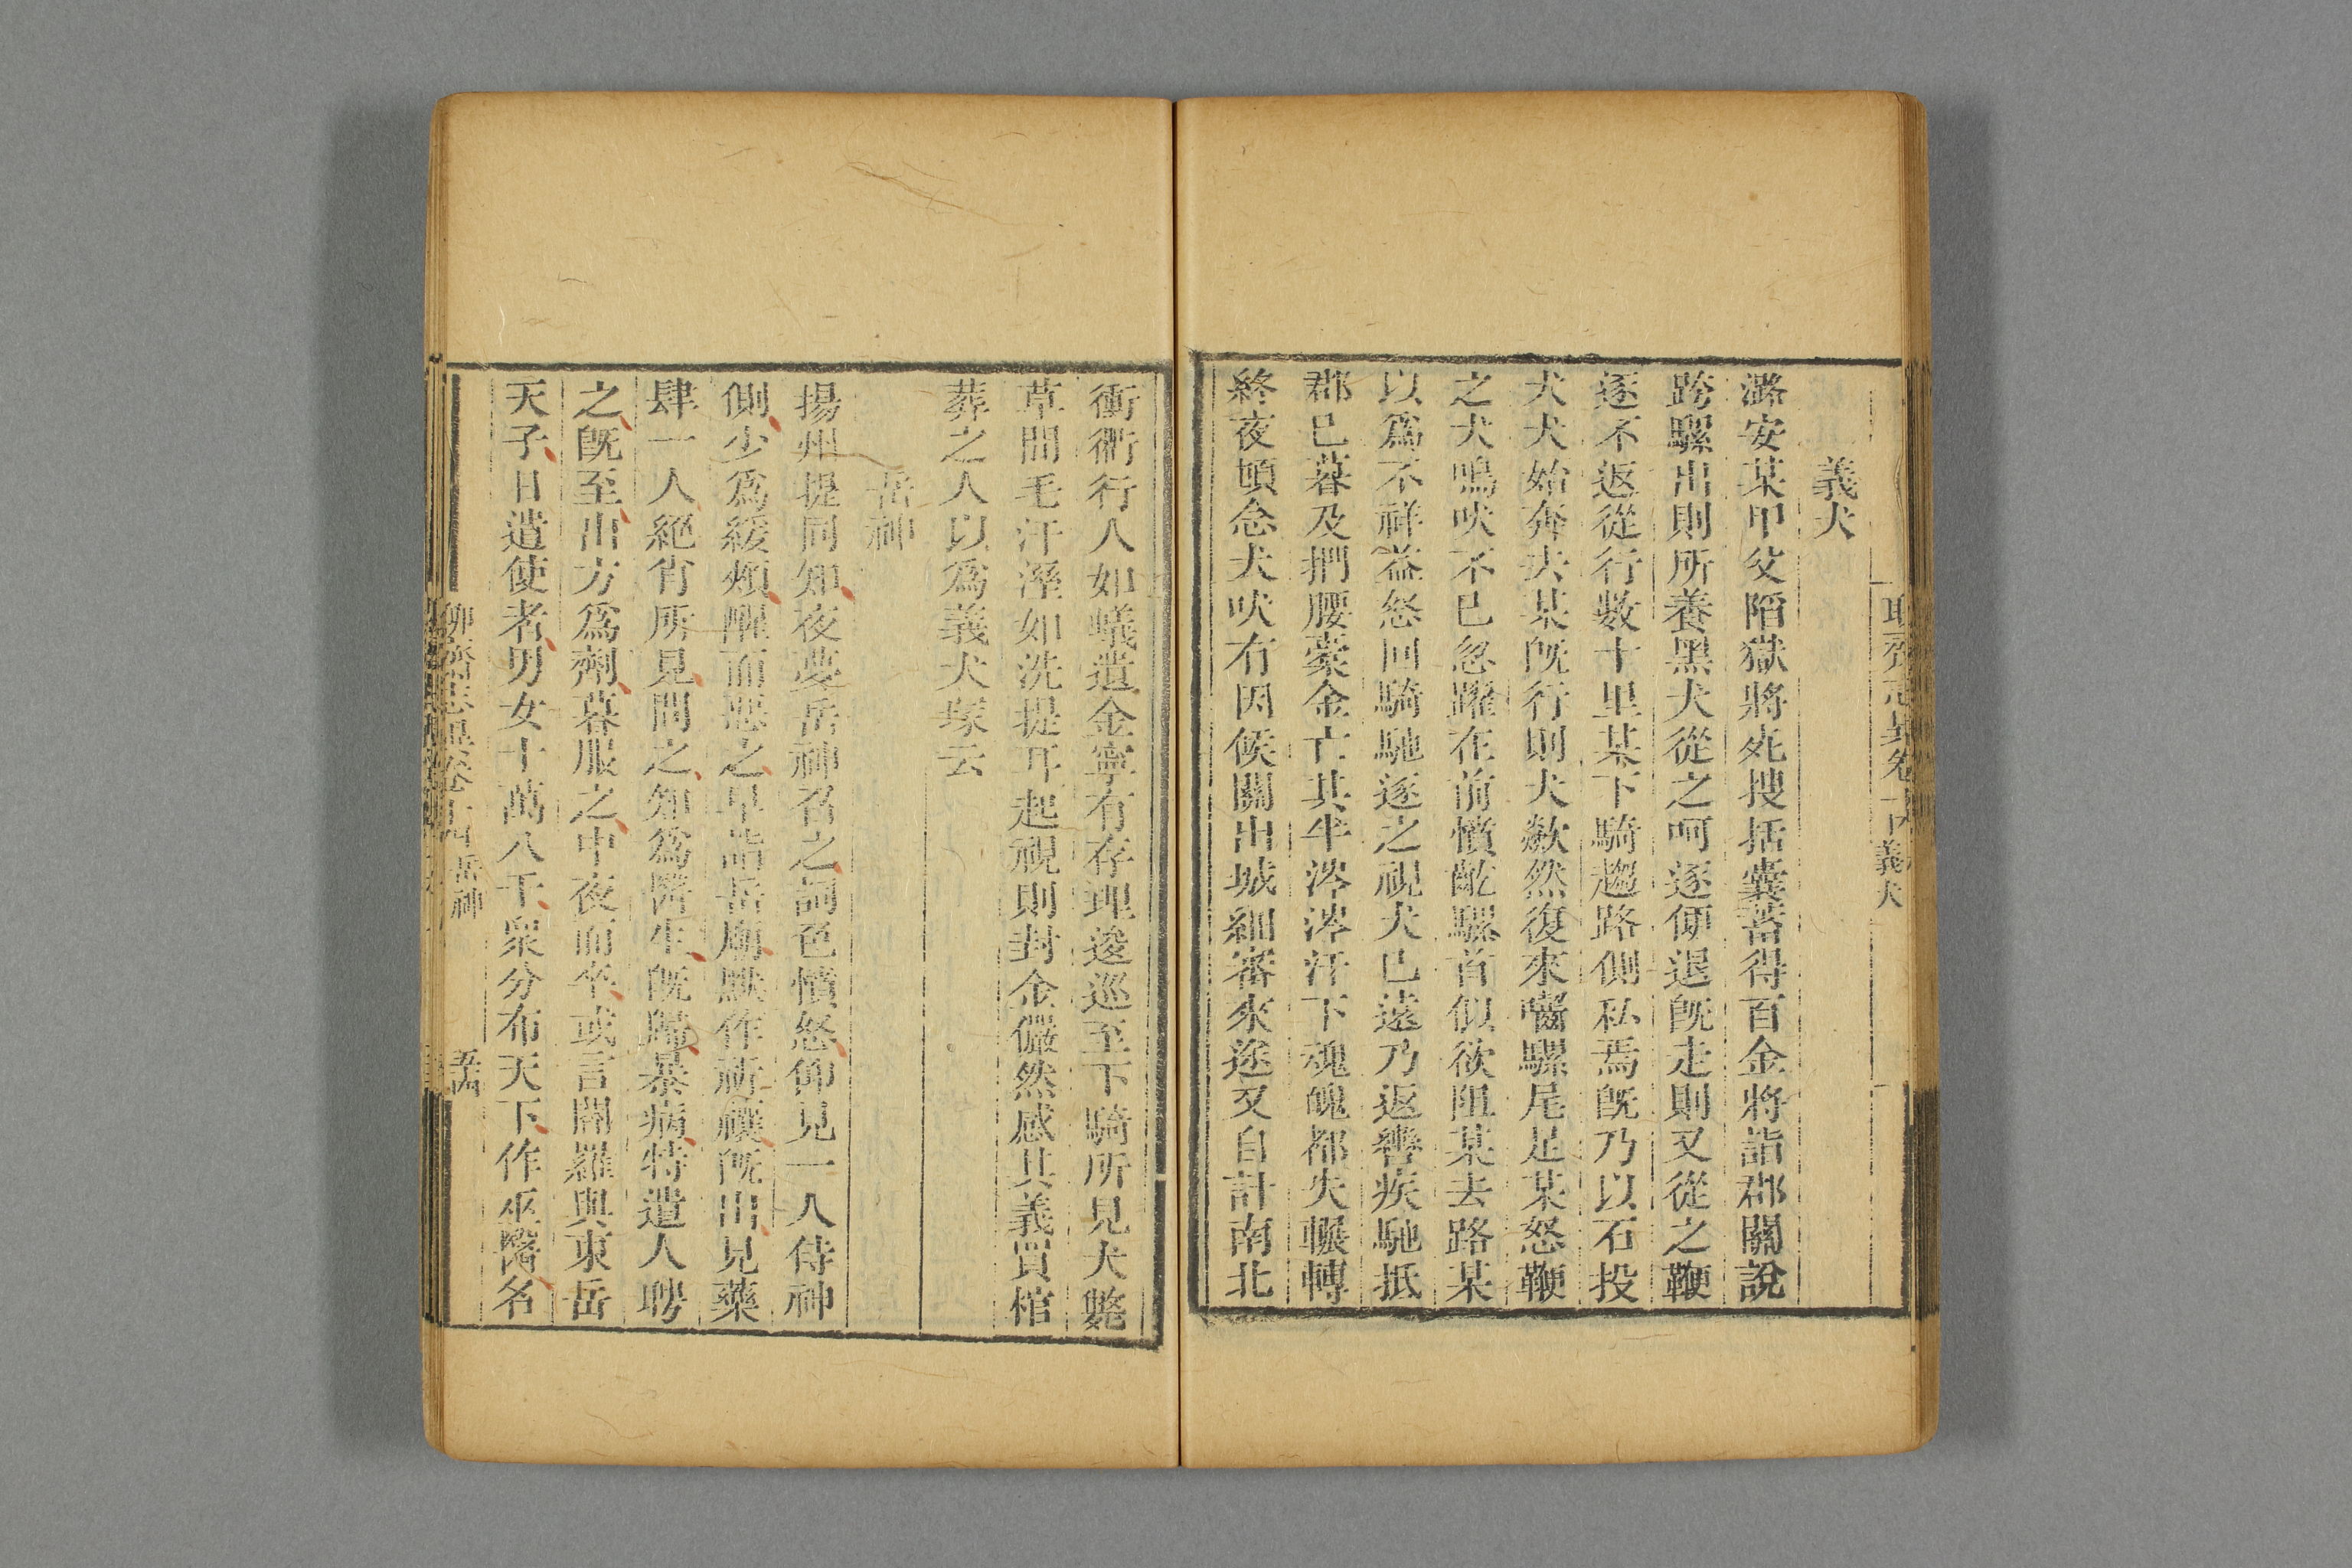 義犬
潞安某甲父陷獄將死搜括囊蓄得百金將詣郡關說
跨騾出則所養黑犬從之呵逐便退既走則又從之鞭
逐不返從行數十里某下騎趨路側私焉既乃以石投
犬犬始奔去某既行則犬歘然復來嚙騾尾足某怒鞭
之犬鳴吠不已忽躍在前憤齕騾首似欲阻某去路某
以爲不祥益怒回騎馳逐之視犬已遠乃返轡疾馳抵
郡已暮及捫腰橐金亡其半涔涔汗下魂魄都失輾轉
終夜頓念犬吠有因候關出城細審來途又自計南北
衝衢行人如蟻遺金寧有存理逡巡至下騎所見犬斃
草間毛汗溼如洗提耳起視則封金儼然感其義買棺
葬之人以爲義犬塚云
岳神
揚州提同知夜夢岳神召之詞色憤怒仰見一人侍神
側少爲緩頰醒而惡之早詣岳廟默作祈禳既出見藥
肆一人絕肖所見問之知爲醫生既歸暴病特遣人聘
之既至出方爲劑暮服之中夜而卒或言閻羅與東岳
天子日遣使者男女十萬八千眾分布天下作巫醫名
義犬
岳神